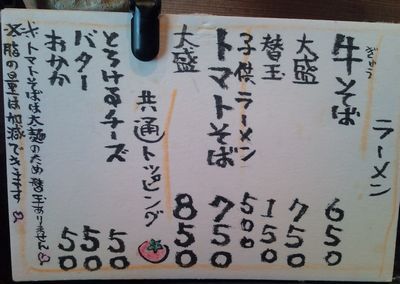 ラーメン
牛そば 650
ぎゅう
大盛 750
替玉 150
子供ラーメン 500
トマトそば 750
大盛 850
共通トッピング
とろけるチーズ 50
バター 50
おかか 50
※トマトそばは太麺のため替玉ありません
※脂の量は加減できます